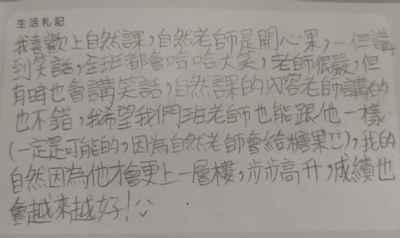 生活札記
我喜歡上自然課，自然老師是開心果，一但講
到笑話，全班都會哈哈大笑，老師很嚴，但
有時也會講笑話，自然課的內容老師講的
也不錯，我希望我們班老師也能跟他一樣
(一定是可能的，因為自然老師會給糖果!)，我的
自然因為他才會更上一層樓，步步高升，成績也
會越來越好!